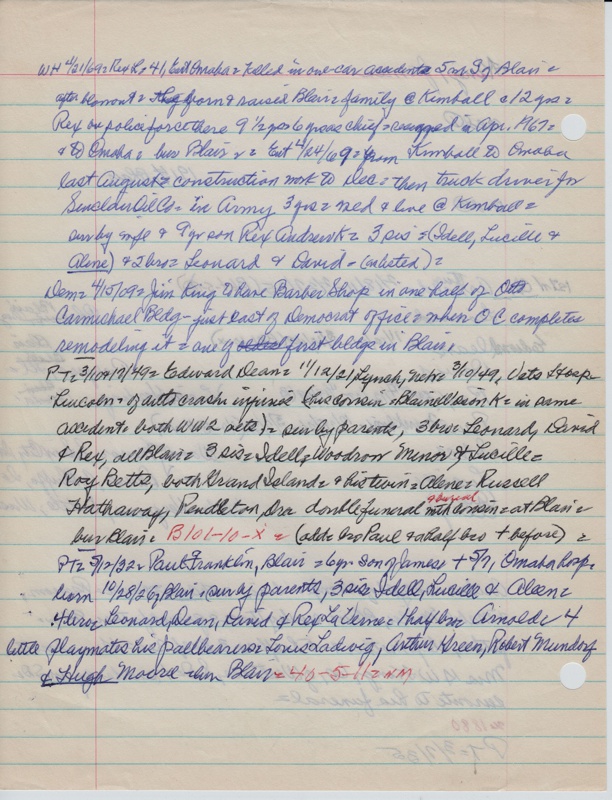 WH 4/21/69 = Rex L, 41, East Omaha = killed in one-car accident 5 mi S of Blair =
after blowout = born & raised Blair = family @ Kimball @ 12 yrs =
Rex on police force there 9 1/2 yrs 6 yrs as chief = resigned in Apr. 1967 =
& to Omaha = bur Blair = Ent 4/24/69 = from Kimball to Omaha
last August = construction work to Dec = then truck driver for
Sinclair Oil Co = In Army 3 yrs = med & live @ Kimball =
sur by wife & 9 yr son Rex Andrew K = 3 sis = (Idell, Lucille &
Aline) & 2 bro = Leonard & David = (as listed) =
Dem = 4/15/09 = Jim King to have Barber Shop in one half of Otto
Carmichael Bldg - just east of Democrat office = when OC completes
remodeling it = one of first bldgs in Blair.
P-T = 3/10 + 17/49 = Edward Dean = 11/12/21 Lynch, Nebr = 3/10/49, Vets Hosp
Lincoln = of auto crash injuries (cousin = Blaine Wilson K = in same
accident = both WW2 vets) = sur by parents, 3 bros = Leonard, David
& Rex, all Blair = 3 sis = Idell = Woodrow Minor & Lucille =
Roy Betts, both Grand Island = & his twin = Alene = Russell
Hathaway, Pendleton, Ore double funeral with cousin = at Blair =
bur Blair = B101-10-X = (add = bro Paul & a half bro + before) =
PT = 5/12/32 = Paul Franklin, Blair = 6 yr son of James + 5/7, Omaha hosp =
born 10/28/26, Blair = sur by parents, 3 sis Idell, Lucille & Aleen =
4 bro = Leonard, Dean, David & Rex LaVerne = half bro Arnold = 4
little playmates his pallbearers = Louis Ladwig, Arthur Green, Robert Mundorf
& Hugh Moore = bur Blair = 40-5-11 = NM